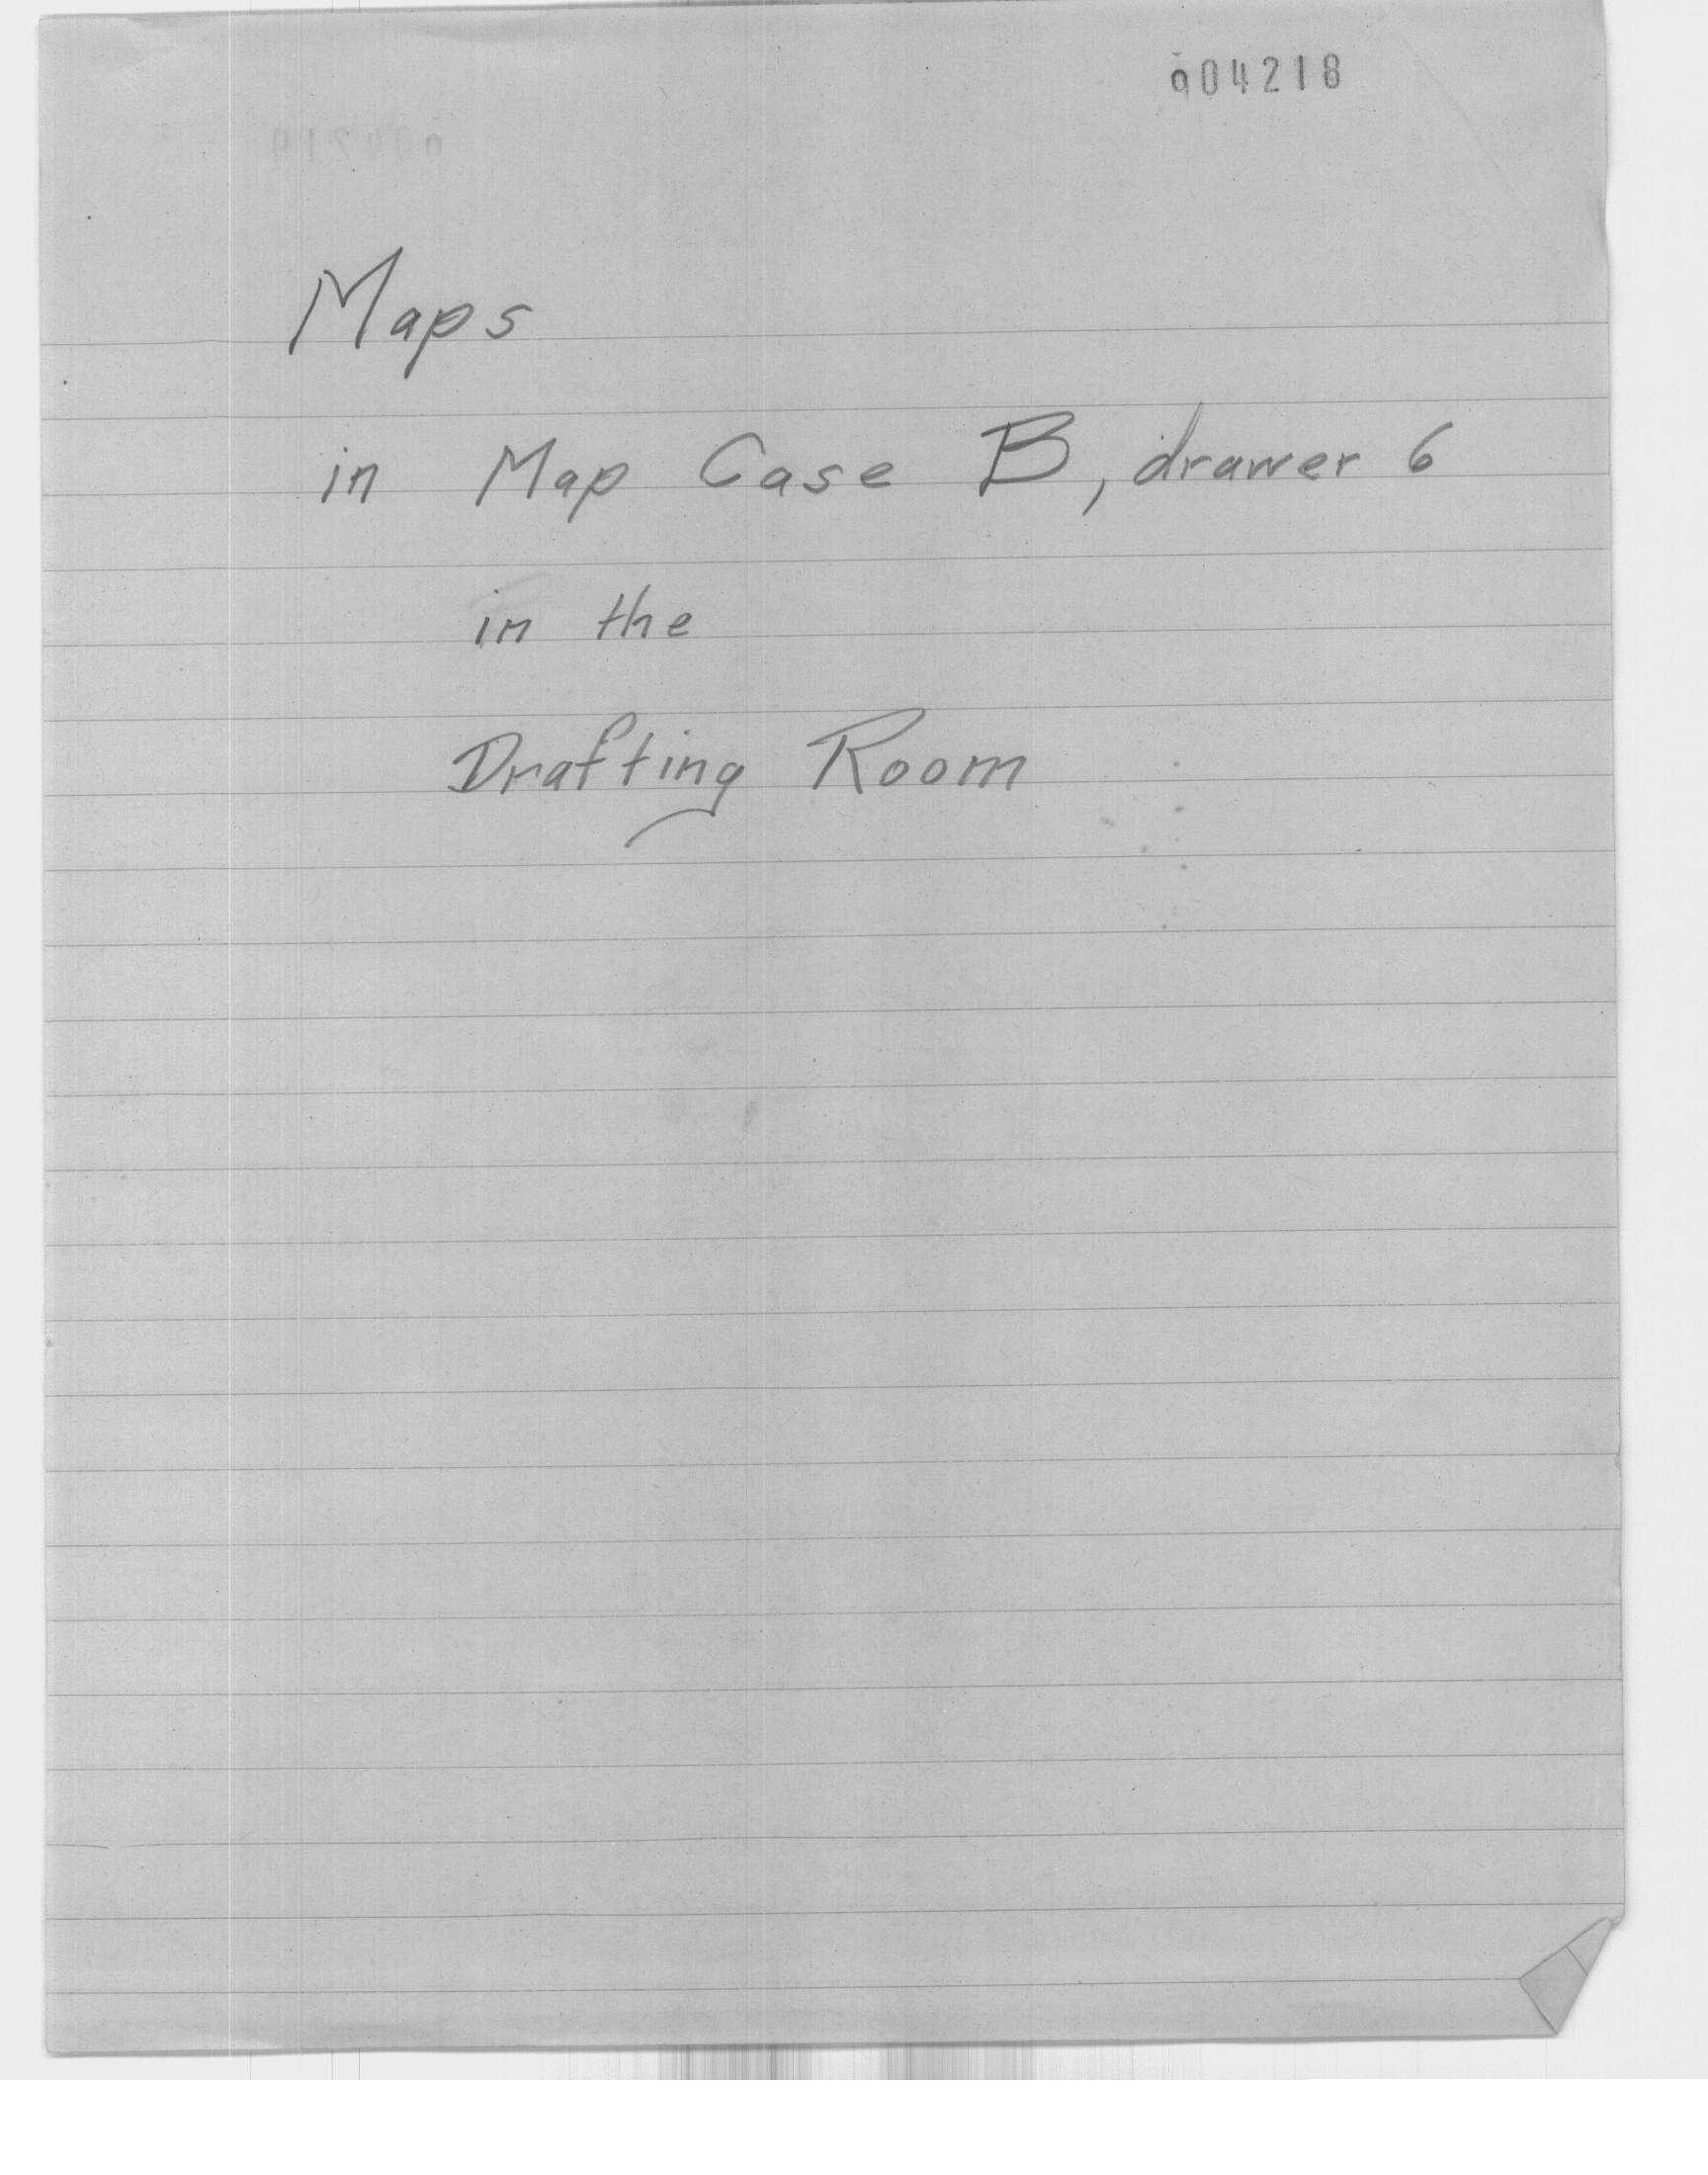 004218
Maps
in Map Case B, drawer 6
in the
Drafting Room